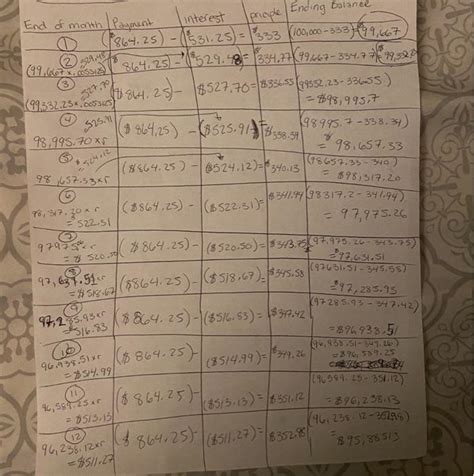 End of month Payment interest principle Ending balance
① $864.25) - $531.25) = $333 (100,000-333) $99,667
② $529.48 (99,667 x .005365) $864.25) - $529.48) = 334.77 (99,667-334.77
③ $527.70 (99332.23x.005365 ($864.25) - $527.70 = $336.55 (99332.23-336.55) = $98,995.7
④ $525.91 98,995.70 xr ($864.25) - ($525.91) $338.34 (98995.7-338.34) = $98,657.33
⑤ $524.12 98,657.33xr ($864.25) - ($524.12) = $340.13 (98657.33-340.) = $98,317.20
⑥ 98,317.20xr = 522.31 ($864.25) - ($522.31) = $341.94 (98317.2-341.94) = 97,975.26
⑦ 97975 xr = $520.50 ($864.25) - ($520.50) = $343.75 (97,975.26-343.75) = 97,631.51
⑧ 97,631.51xr = $518.67 ($864.25) - ($518.67) = $345.58 (97631.51-345.58) = 97,285.93
⑨ 97,285.93xr = 516.83 ($864.25) - ($516.83) = $347.42 (97285.93-347.42) = $96,938.51
⑩ 96,938.51xr = $514.99 ($864.25) - ($514.99) = $349.26 (96,938.51-349.26) = $96,589.25
⑪ 96,589.25xr = $513.13 $864.25) - ($513.13) = $351.12 (96589.25-351.12) = $96,238.13
⑫ 96,238.12xr = $511.27 $864.25) - ($511.27) = $352.98 (96,238.12-352.98) = $95,885.13